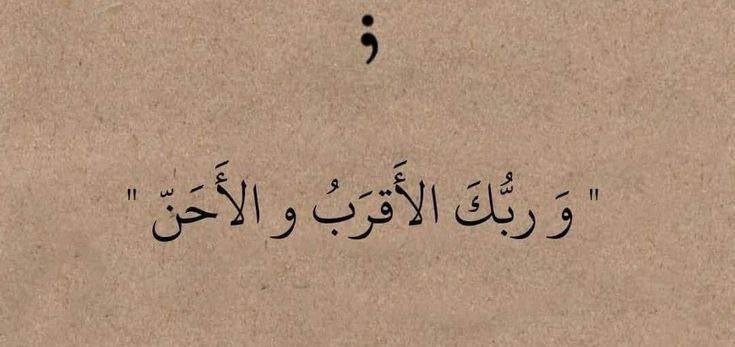 ;
" وَ ربُّكَ الأَقرَبُ و الأَحَنّ "